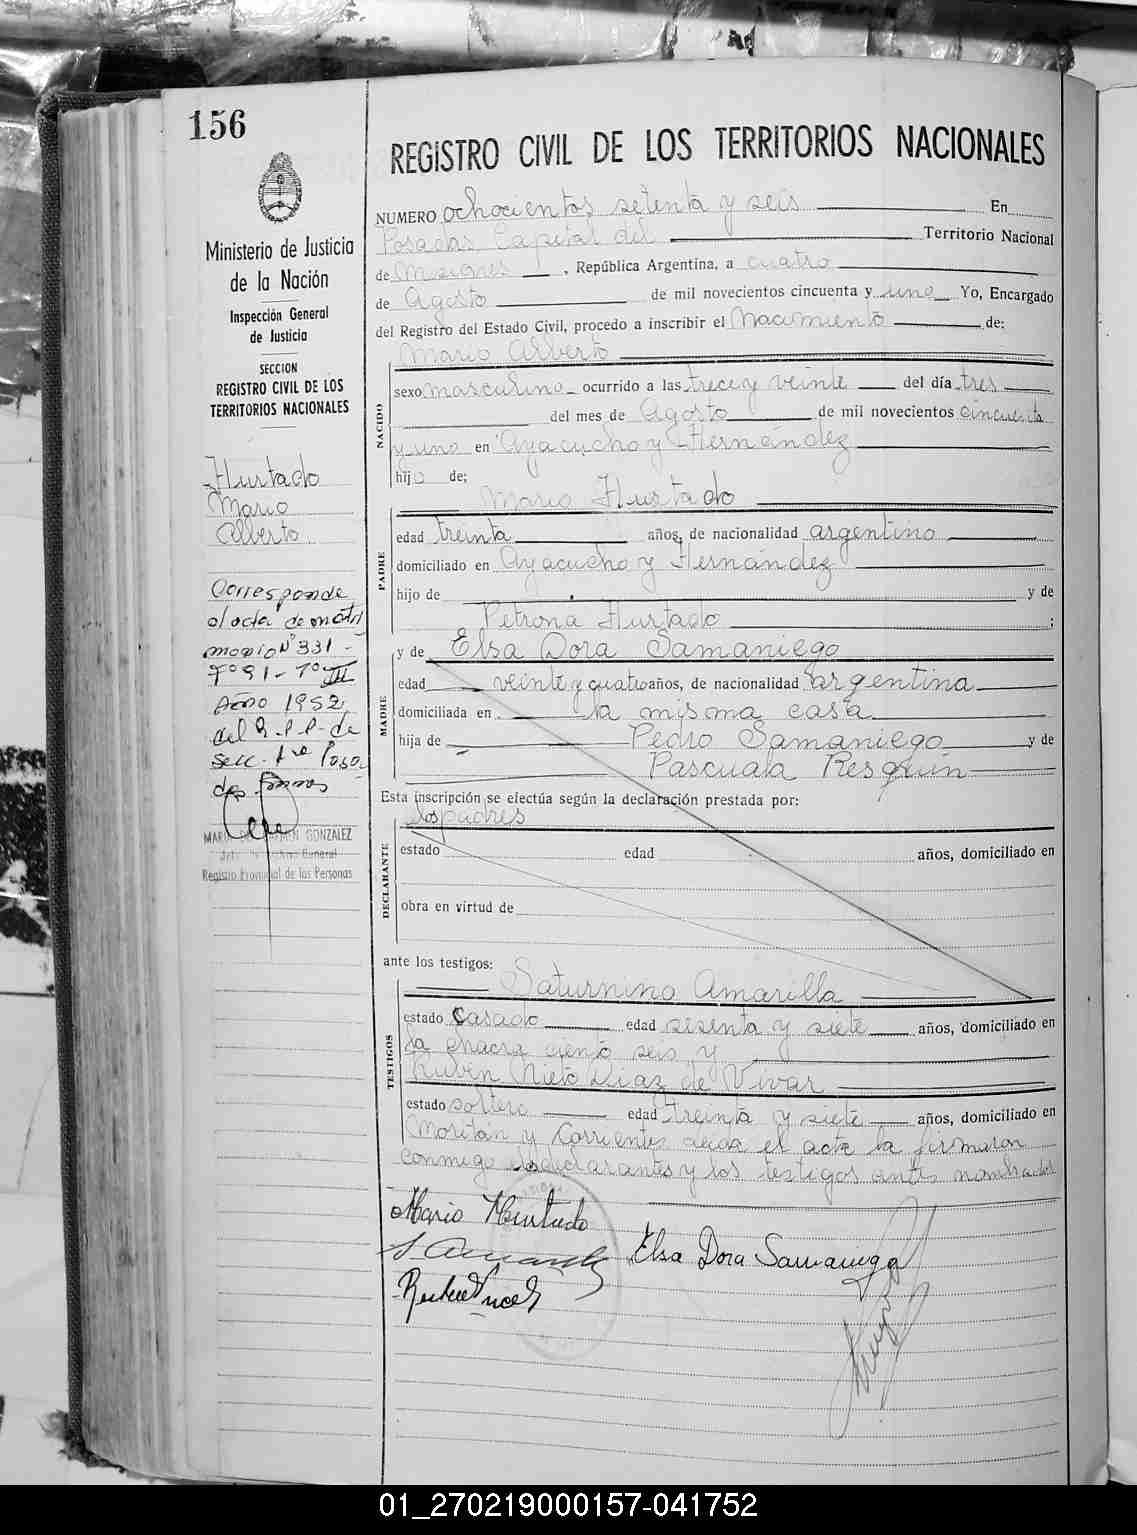 156
Ministerio de Justicia
de la Nación
Inspección General
de Justicia
SECCION
REGISTRO CIVIL DE LOS
TERRITORIOS NACIONALES
Hurtado
Mario
Alberto
Corresponde
al acta de matri
monio Nº 331 -
Fº 91 - Tº III
Año 1952
del R.P.P. de
Secc. 1ra Posa
das
MARIA DEL CARMEN GONZALEZ
Jefe de Archivo General
Registro Provincial de las Personas
REGISTRO CIVIL DE LOS TERRITORIOS NACIONALES
NUMERO ochocientos setenta y seis En
Posadas Capital del Territorio Nacional
de Misiones, República Argentina, a cuatro
de Agosto de mil novecientos cincuenta y uno Yo, Encargado
del Registro del Estado Civil, procedo a inscribir el Nacimiento de:
Mario Alberto
NACIDO
sexo masculino ocurrido a las trece y veinte del día tres
del mes de Agosto de mil novecientos cincuenta
y uno en Ayacucho y Hernández
hijo de;
Mario Hurtado
PADRE
edad treinta años, de nacionalidad argentino
domiciliado en Ayacucho y Hernández
hijo de y de
Petrona Hurtado ;
y de Elsa Dora Samaniego
MADRE
edad veinte y cuatro años, de nacionalidad argentina
domiciliada en la misma casa
hija de Pedro Samaniego y de
Pascuala Resquin
Esta inscripción se efectúa según la declaración prestada por:
los padres
DECLARANTE
estado edad años, domiciliado en
obra en virtud de
ante los testigos:
Saturnino Amarilla
TESTIGOS
estado Casado edad sesenta y siete años, domiciliado en
la chacra ciento seis y
Ruben Nieto Diaz de Vivar
estado soltero edad treinta y siete años, domiciliado en
Moritán y Corrientes el acta la firmaron
conmigo los declarantes y los testigos antes nombrados
Mario Hurtado
Elsa Dora Samaniego
01_270219000157-041752